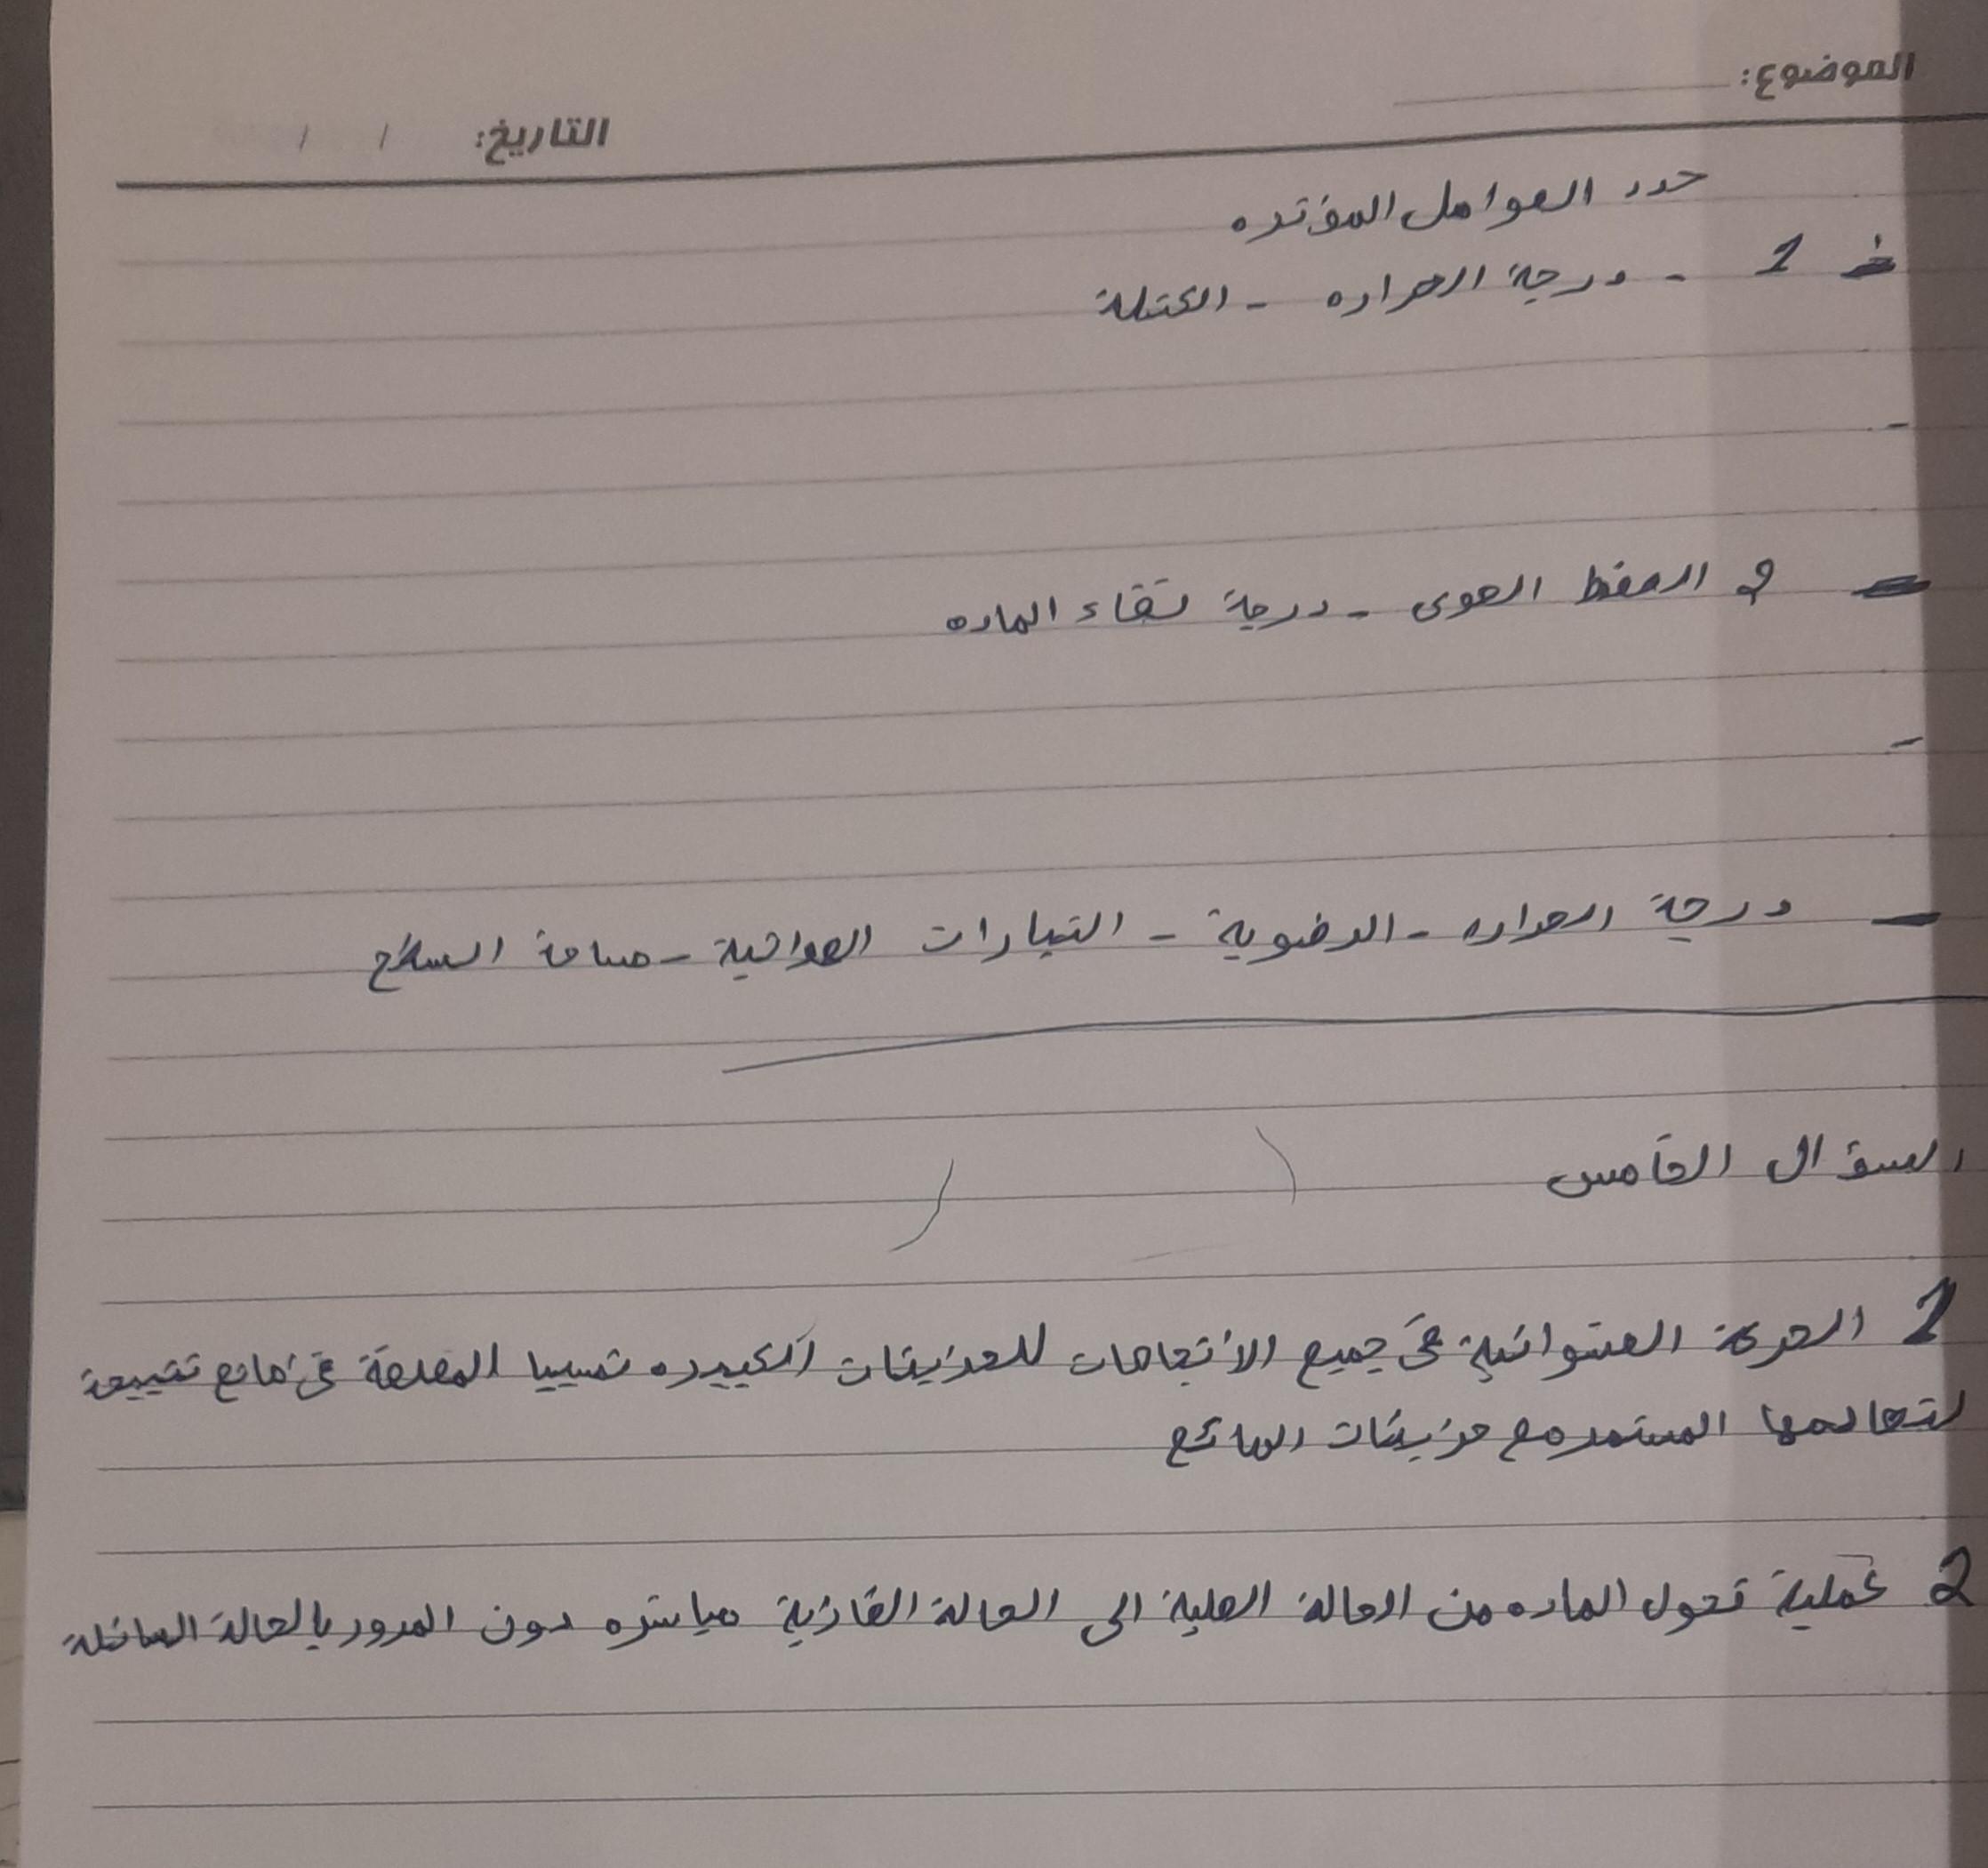 الموضوع:
التاريخ: / /
حدد العوامل المؤثره
1 - درجة الحراره - الكتلة
-
2 الضغط الجوى - درجة نقاء الماده
-
- درجة الحراره - الرطوبة - التيارات الهوائية - مساحة السطح
السؤال الخامس ( )
1 الحركة العشوائية فى جميع الأتجاهات للجزيئات الكبيره نسبيا المعلقة فى مائع نتيجة
لتصادمها المستمر مع جزيئات المائع
2 عملية تحول الماده من الحالة الصلبة الى الحالة الغازية مباشره دون المرور بالحالة السائلة